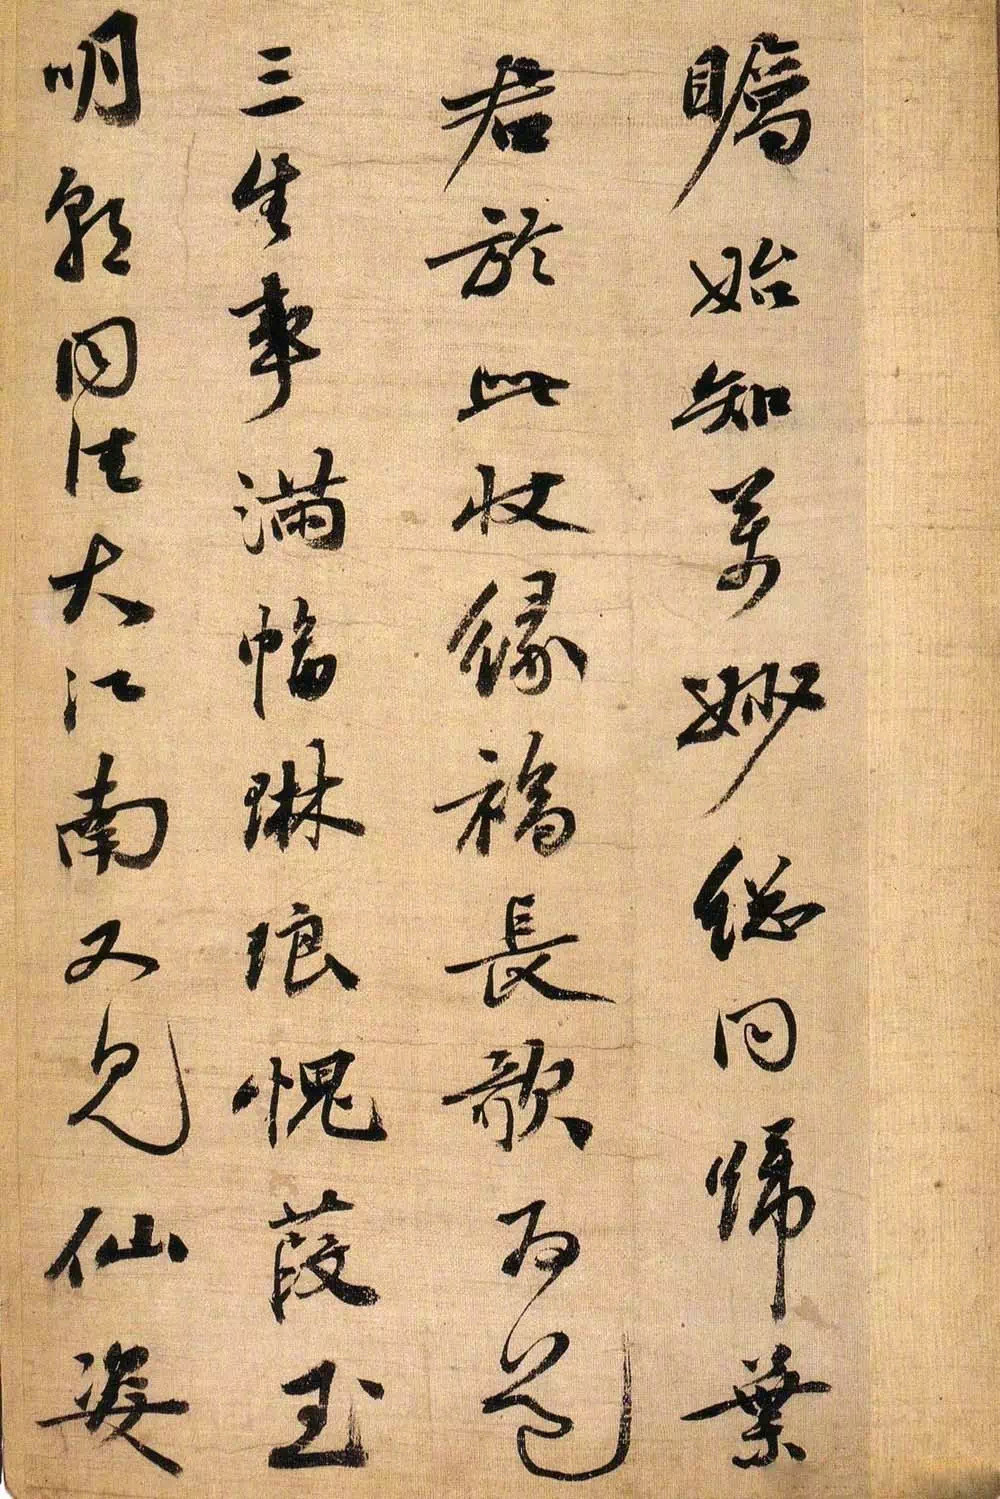 矚始知萬妙總同歸葉
君於此收緣福長歌為邑
三生事滿幅琳琅愧葭玉
明朝同泛大江南又見仙姿